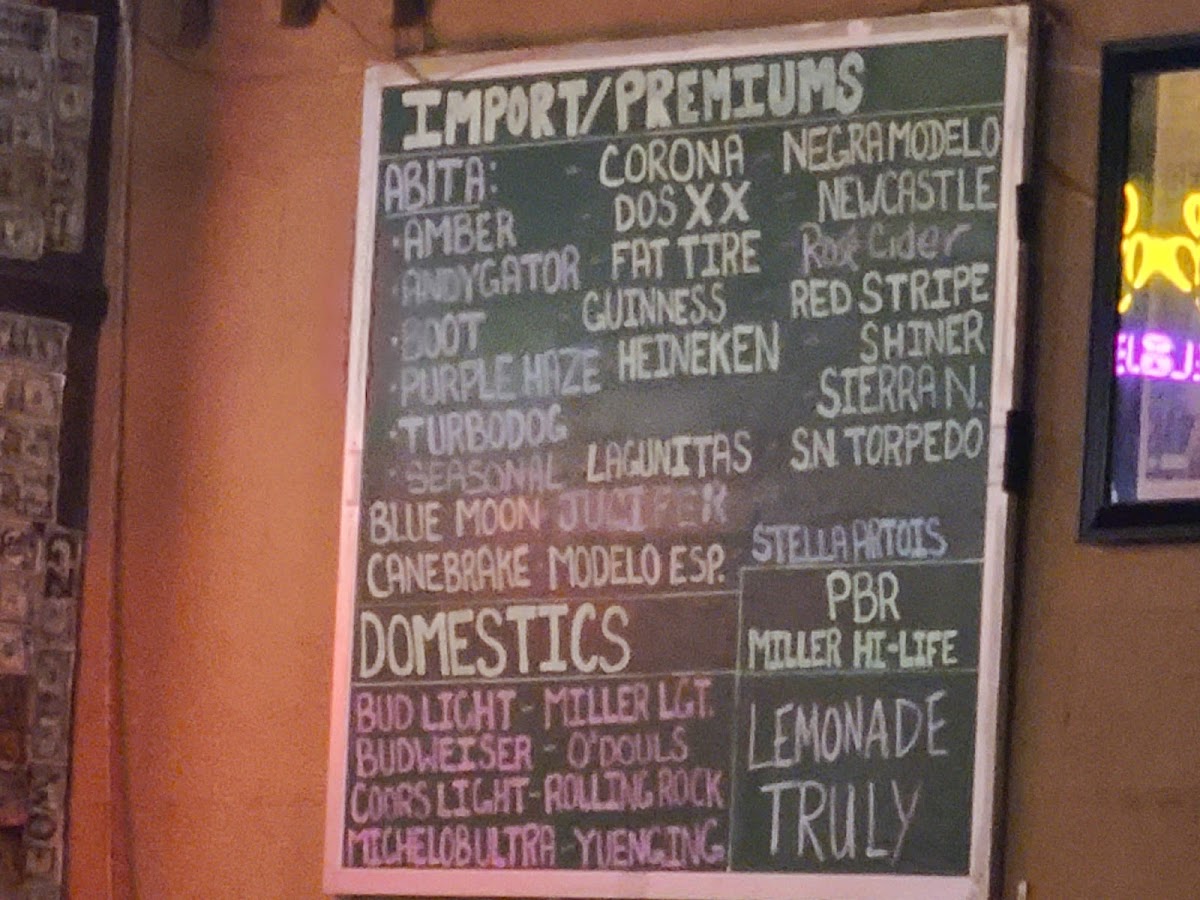 IMPORT/PREMIUMS
ABITA: - CORONA - NEGRA MODELO
·AMBER - DOS XX NEWCASTLE
·ANDYGATOR - FAT TIRE - Cider
·BOOT - GUINNESS - RED STRIPE
·PURPLE HAZE HEINEKEN - SHINER
·TURBODOG - SIERRA N.
·SEASONAL LAGUNITAS - SN. TORPEDO
BLUE MOON JUCIFER
CANEBRAKE MODELO ESP. STELLA ARTOIS
DOMESTICS
BUD LIGHT - MILLER LGT.
BUDWEISER - O'DOULS
COORS LIGHT - ROLLING ROCK
MICHELOB ULTRA - YUENGING
PBR
MILLER HI-LIFE
LEMONADE
TRULY